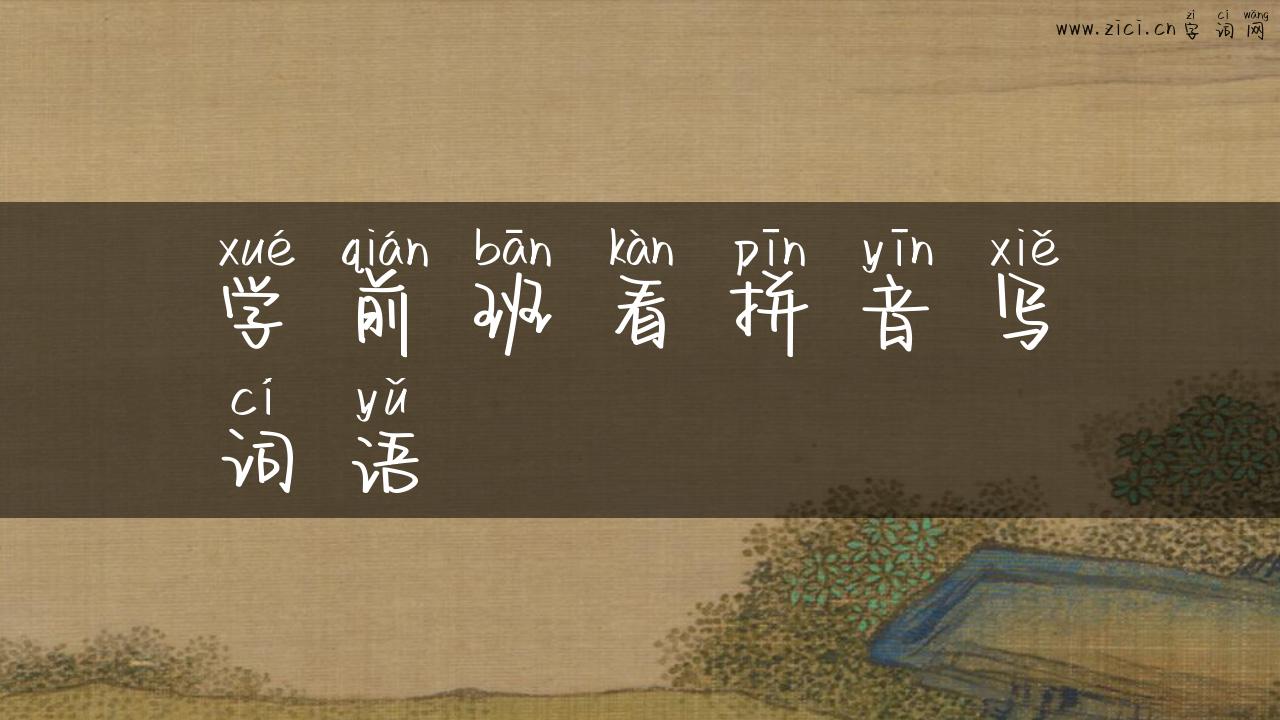 zì cí wǎng
www.zici.cn 字 词 网
xué qián bān kàn pīn yīn xiě
学 前 班 看 拼 音 写
cí yǔ
词 语